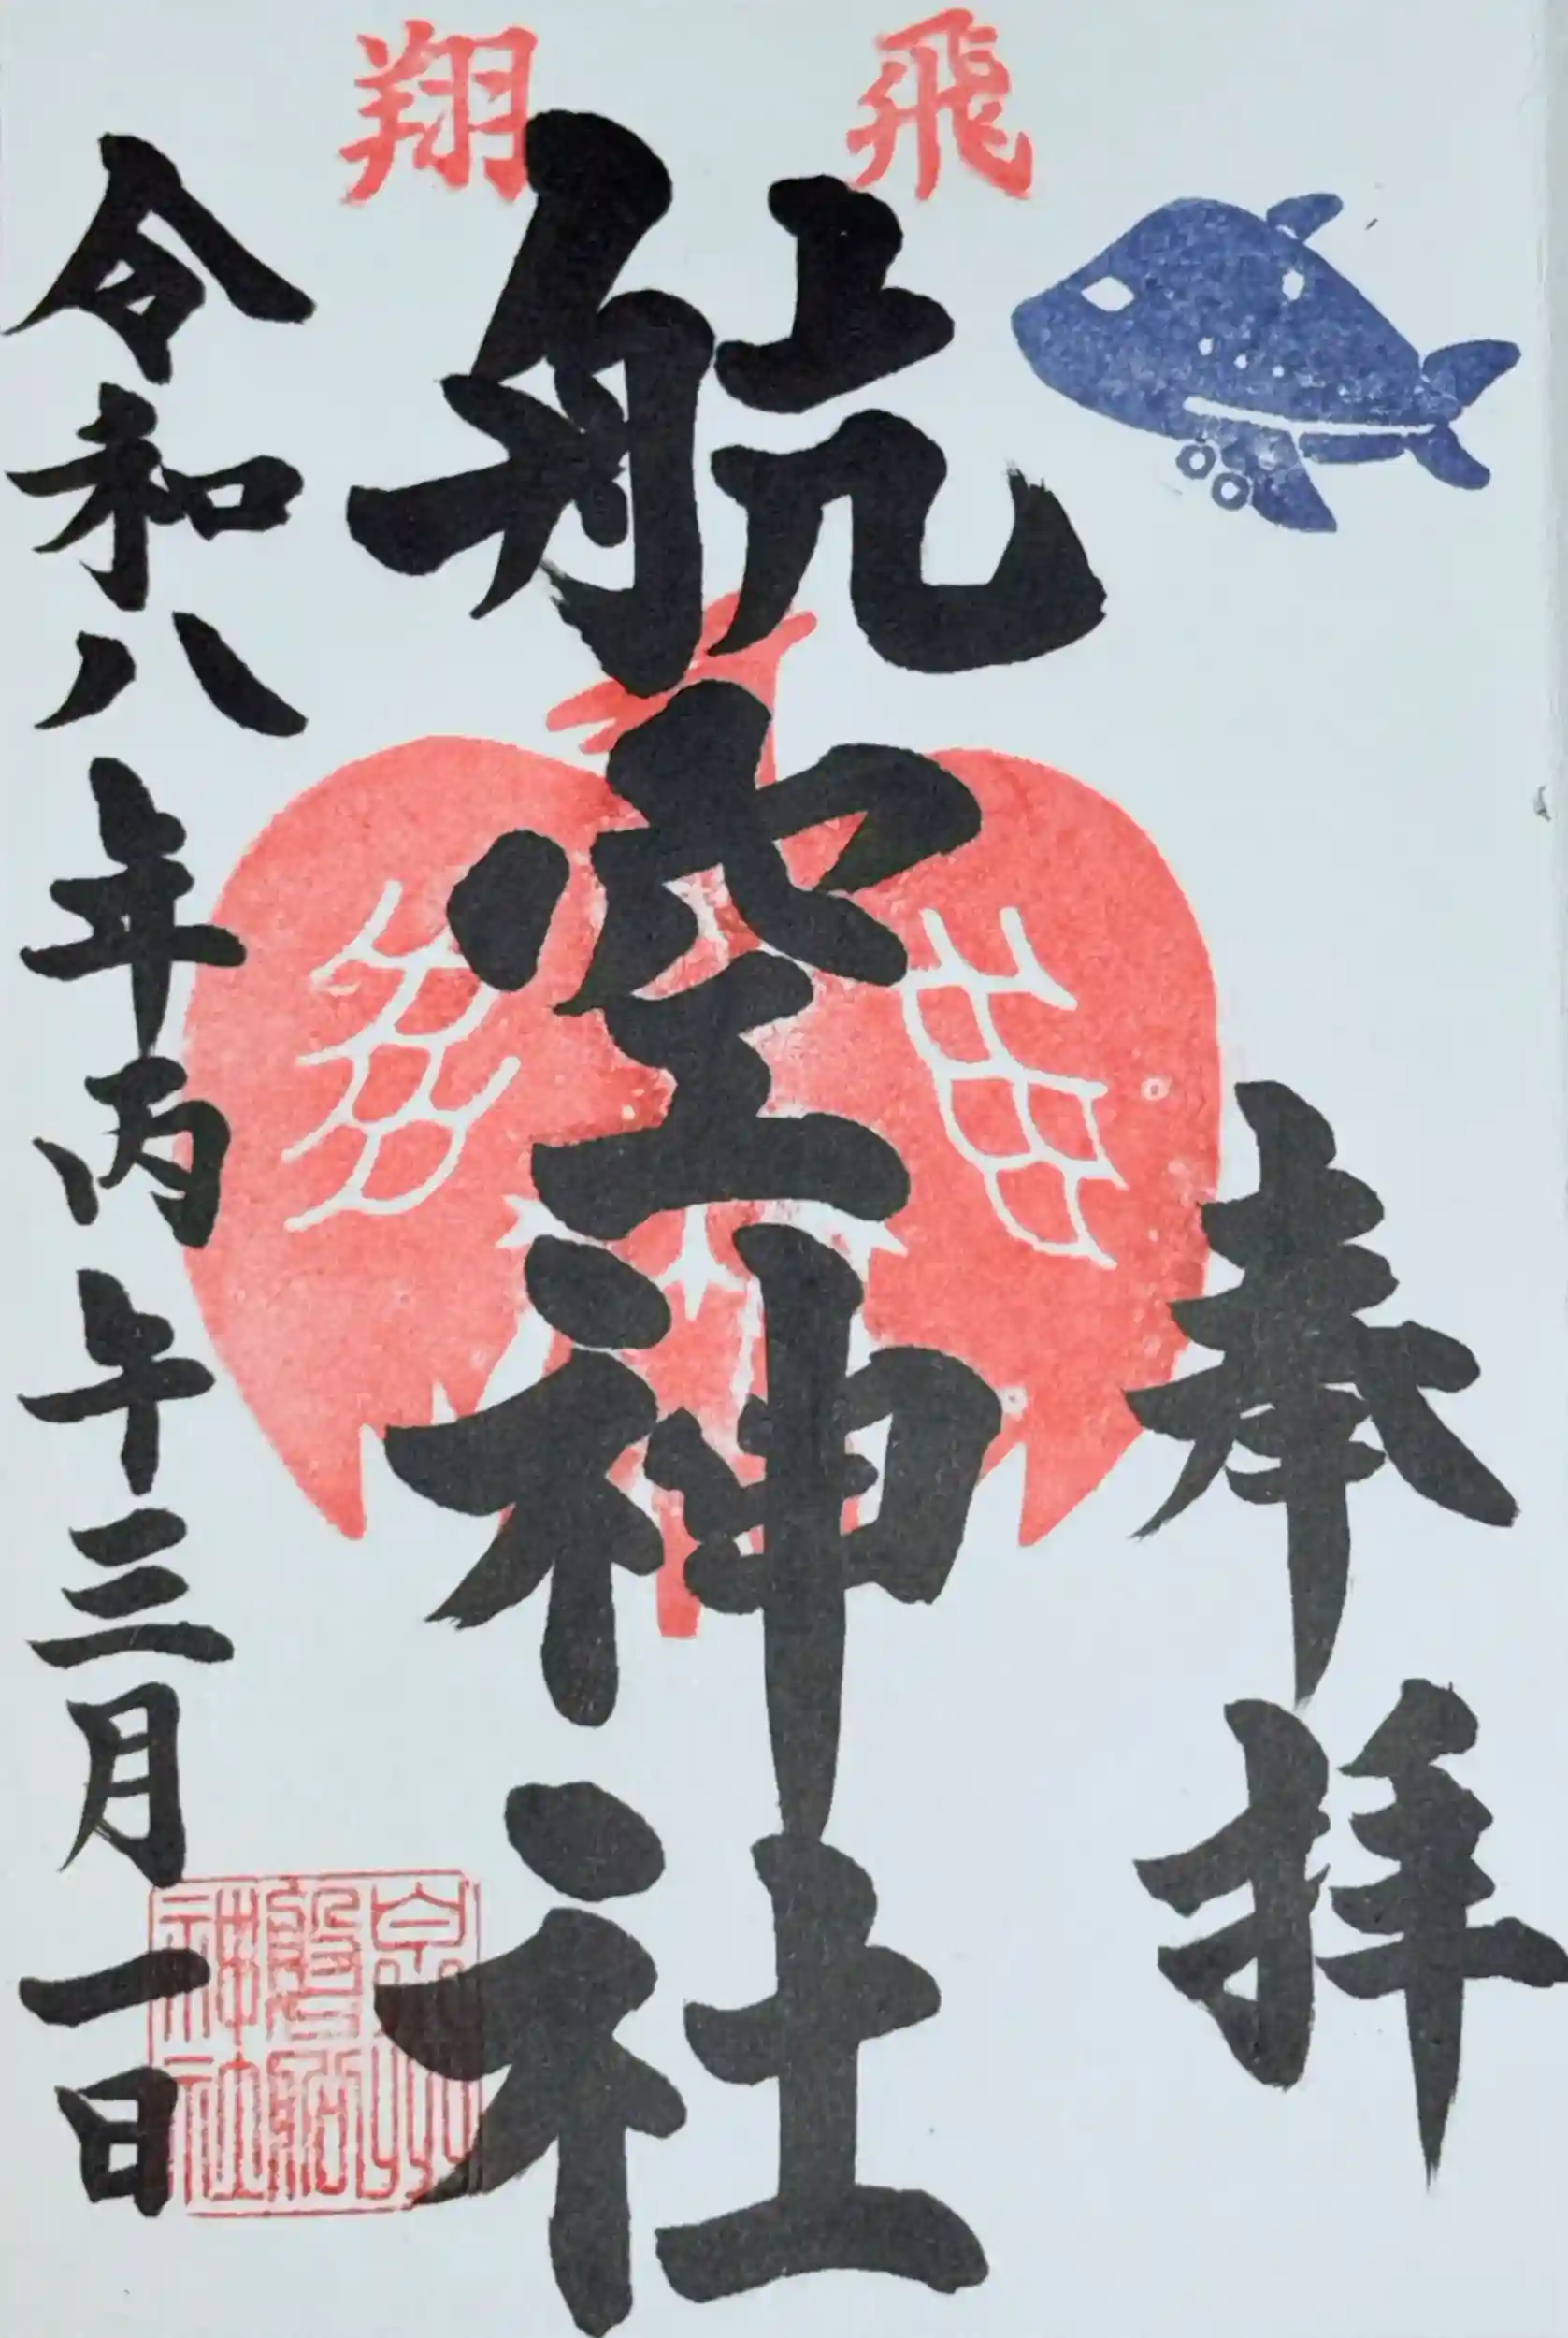 奉拝
飛翔
航空神社
令和八年丙午三月一日
泉州
磐船
神社